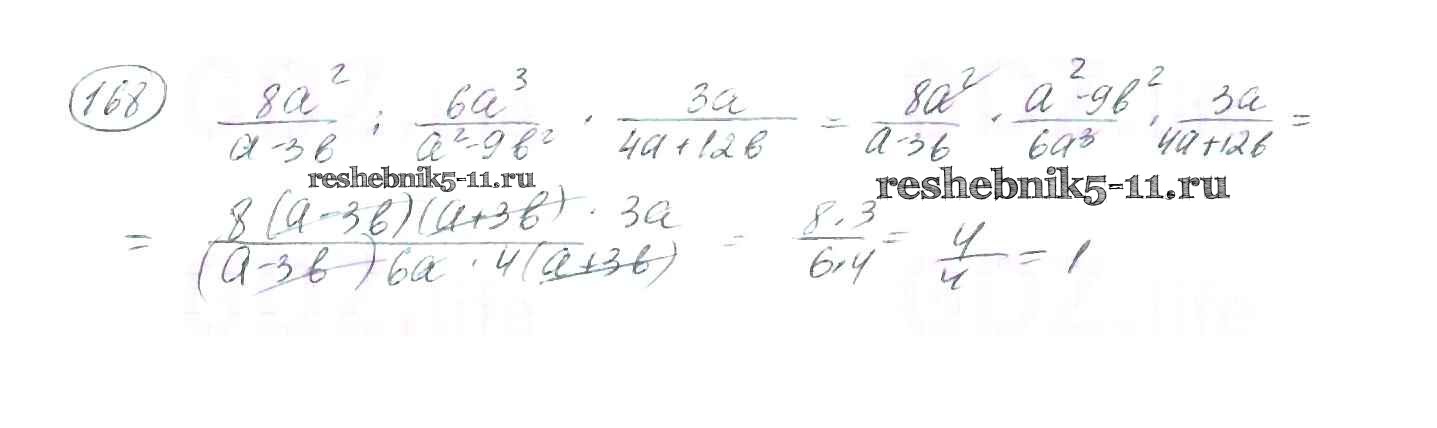 168 8a²/(a-3b) : 6a³/(a²-9b²) · 3a/(4a+12b) = 8a²/(a-3b) · (a²-9b²)/6a³ · 3a/(4a+12b) =
reshebnik5-11.ru reshebnik5-11.ru
= 8(a-3b)(a+3b) · 3a/((a-3b)6a · 4(a+3b)) = 8·3/6·4 = 4/4 = 1
GDZ.life GDZ.life